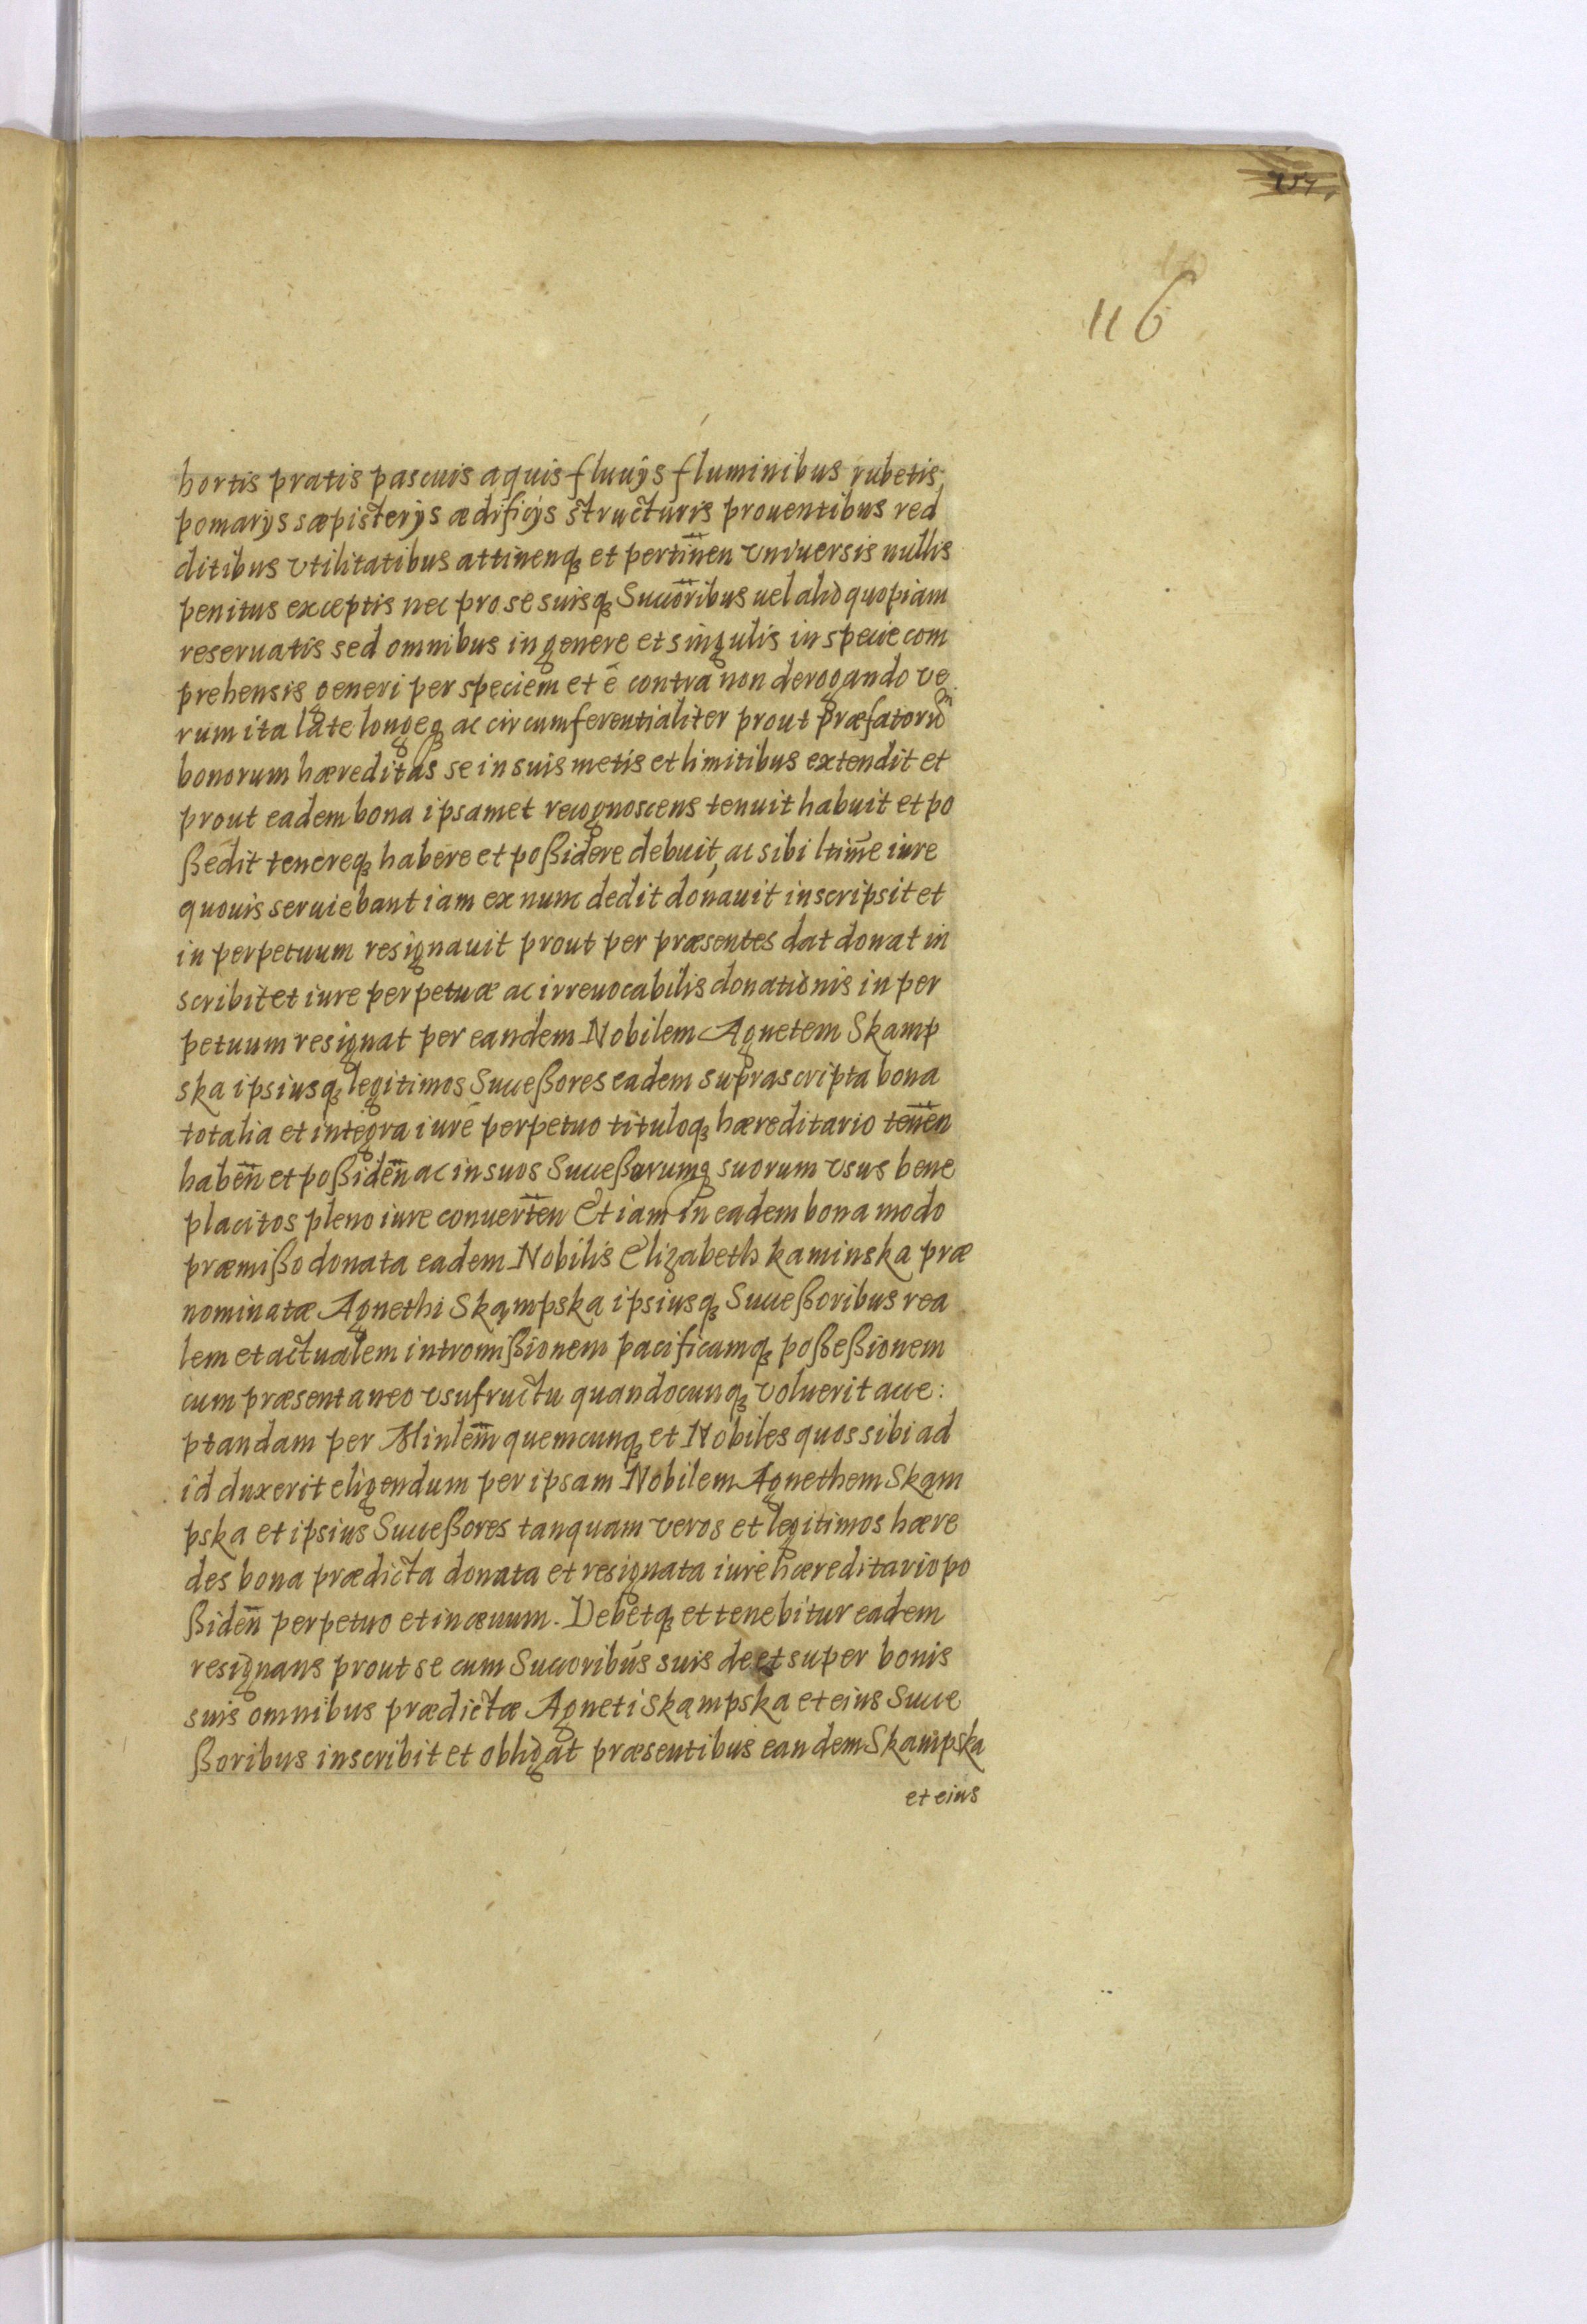 116
hortis pratis pascuis aquis fluuÿs fluminibus rubetis
pomarÿs sæpisterÿs ædificÿs structuris prouentibus red
ditibus vtilitatibus attinenqꝫ et pertinen̄ vniuersis nullis
penitus exceptis nec pro se suisqꝫ Succōribus uel alio quopiam
reseruatis sed omnibus in genere et singulis in specie com
prehensis generi per speciem et é contra non derogando ve
rum ita late longeqꝫ ac circumferentialiter prout præfatorū
bonorum hæreditas se in suis metis et limitibus extendit et
prout eadem bona ipsamet recognoscens tenuit habuit et po
ßedit tenereqꝫ habere et poßidere debuit, ac sibi ltim̄e iure
quouis seruiebant iam ex nunc dedit donauit inscripsit et
in perpetuum resignauit prout per præsentes dat donat in
scribit et iure perpetuæ ac irreuocabilis donationis in per
petuum resignat per eandem Nobilem Agnetem Skamp
ska ipsiusqꝫ legitimos Succeßores eadem suprascripta bona
totalia et integra iure perpetuo tituloqꝫ hæreditario tenen̄
haben̄ et poßiden̄ ac in suos Succeßorumqꝫ suorum vsus bene
placitos pleno iure conuerten̄ Et iam in eadem bona modo
præmißo donata eadem Nobilis Elizabeth kaminska præ
nominatæ Agnethi Skąmpska ipsiusqꝫ Succeßoribus rea
lem et actualem intromißionem pacificamqꝫ poßeßionem
cum præsentaneo vsufructu quandocunqꝫ voluerit acce:
ptandam per Minlem̄ quemcunqꝫ et Nobiles quos sibi ad
id duxerit eligendum per ipsam Nobilem Agnethem Skąm
pska et ipsius Succeßores tanquam veros et legitimos hære
des bona prædicta donata et resignata iure hæreditario po
ßiden̄ perpetuo et in æuum. Debetqꝫ et tenebitur eadem
resignans prout se cum Succoribus suis de et super bonis
suis omnibus prædictæ Agneti Skąmpska et eius Succe
ßoribus inscribit et obligat præsentibus eandem Skampska
et eius